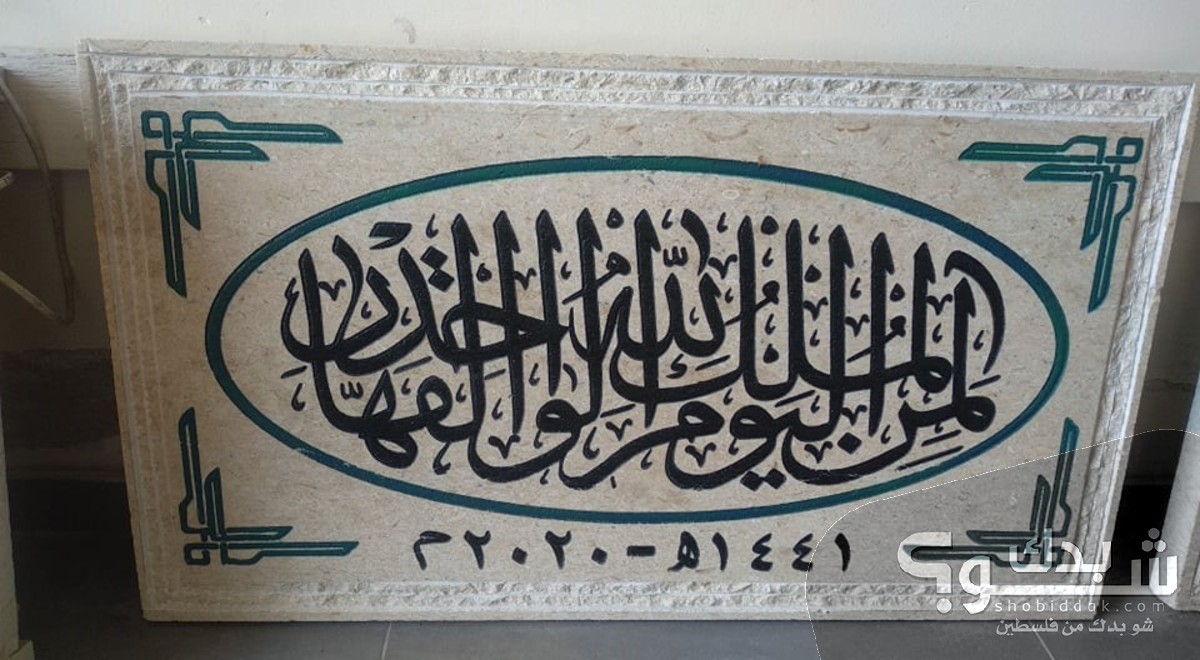 لمن الملك اليوم لله الواحد القهار
١٤٤١هـ - ٢٠٢٠م
شو بدك؟
shobiddak.com
شو بدك من فلسطين